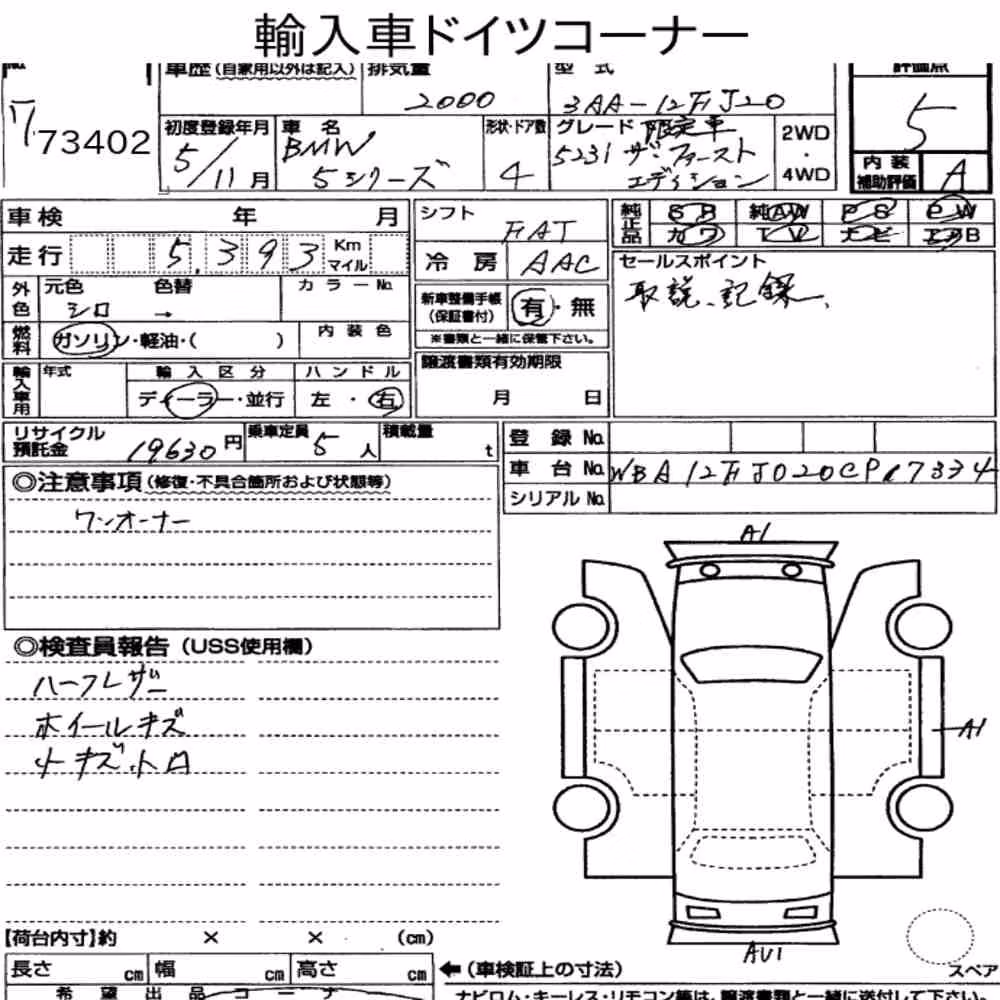 輸入車ドイツコーナー
車歴 (自家用以外は記入) 排気量 型式 評価点
2000 3AA-12FJ20 5
73402
初度登録年月 車名 形状・ドア数 グレード 限定車 2WD
5/11月 BMW 5シリーズ 4 523i ザ・ファースト エディション ・ 4WD
内装補助評価 A
車検 年 月 シフト FAT 純正品 SR 純AW PS PW
走行 5,393 Km マイル 冷房 AAC カワ TV ナビ エアB
外色 元色 色替 カラーNo. セールスポイント
シロ → 新車整備手帳 (保証書付) 有・無 取説、記録、
燃料 ガソリン・軽油・( ) 内装色 ※書類と一緒に保管下さい。
輸入車用 年式 輸入区分 ハンドル 譲渡書類有効期限
ディーラー・並行 左・右 月 日
リサイクル預託金 19630円 乗車定員 5人 積載量 t 登録No.
車台No. WBA12FJ020CP
シリアルNo.
◎注意事項 (修復・不具合箇所および状態等)
ワンオーナー
A1
◎検査員報告 (USS使用欄)
ハーフレザー
ホイールキズ
小キズ、小凹
A1
【荷台内寸】約 × × (cm)
AU1
長さ cm 幅 cm 高さ cm ←(車検証上の寸法) スペア
希望出品コーナー ナビロム・キーレス・リモコン等は、譲渡書類と一緒に送付して下さい。